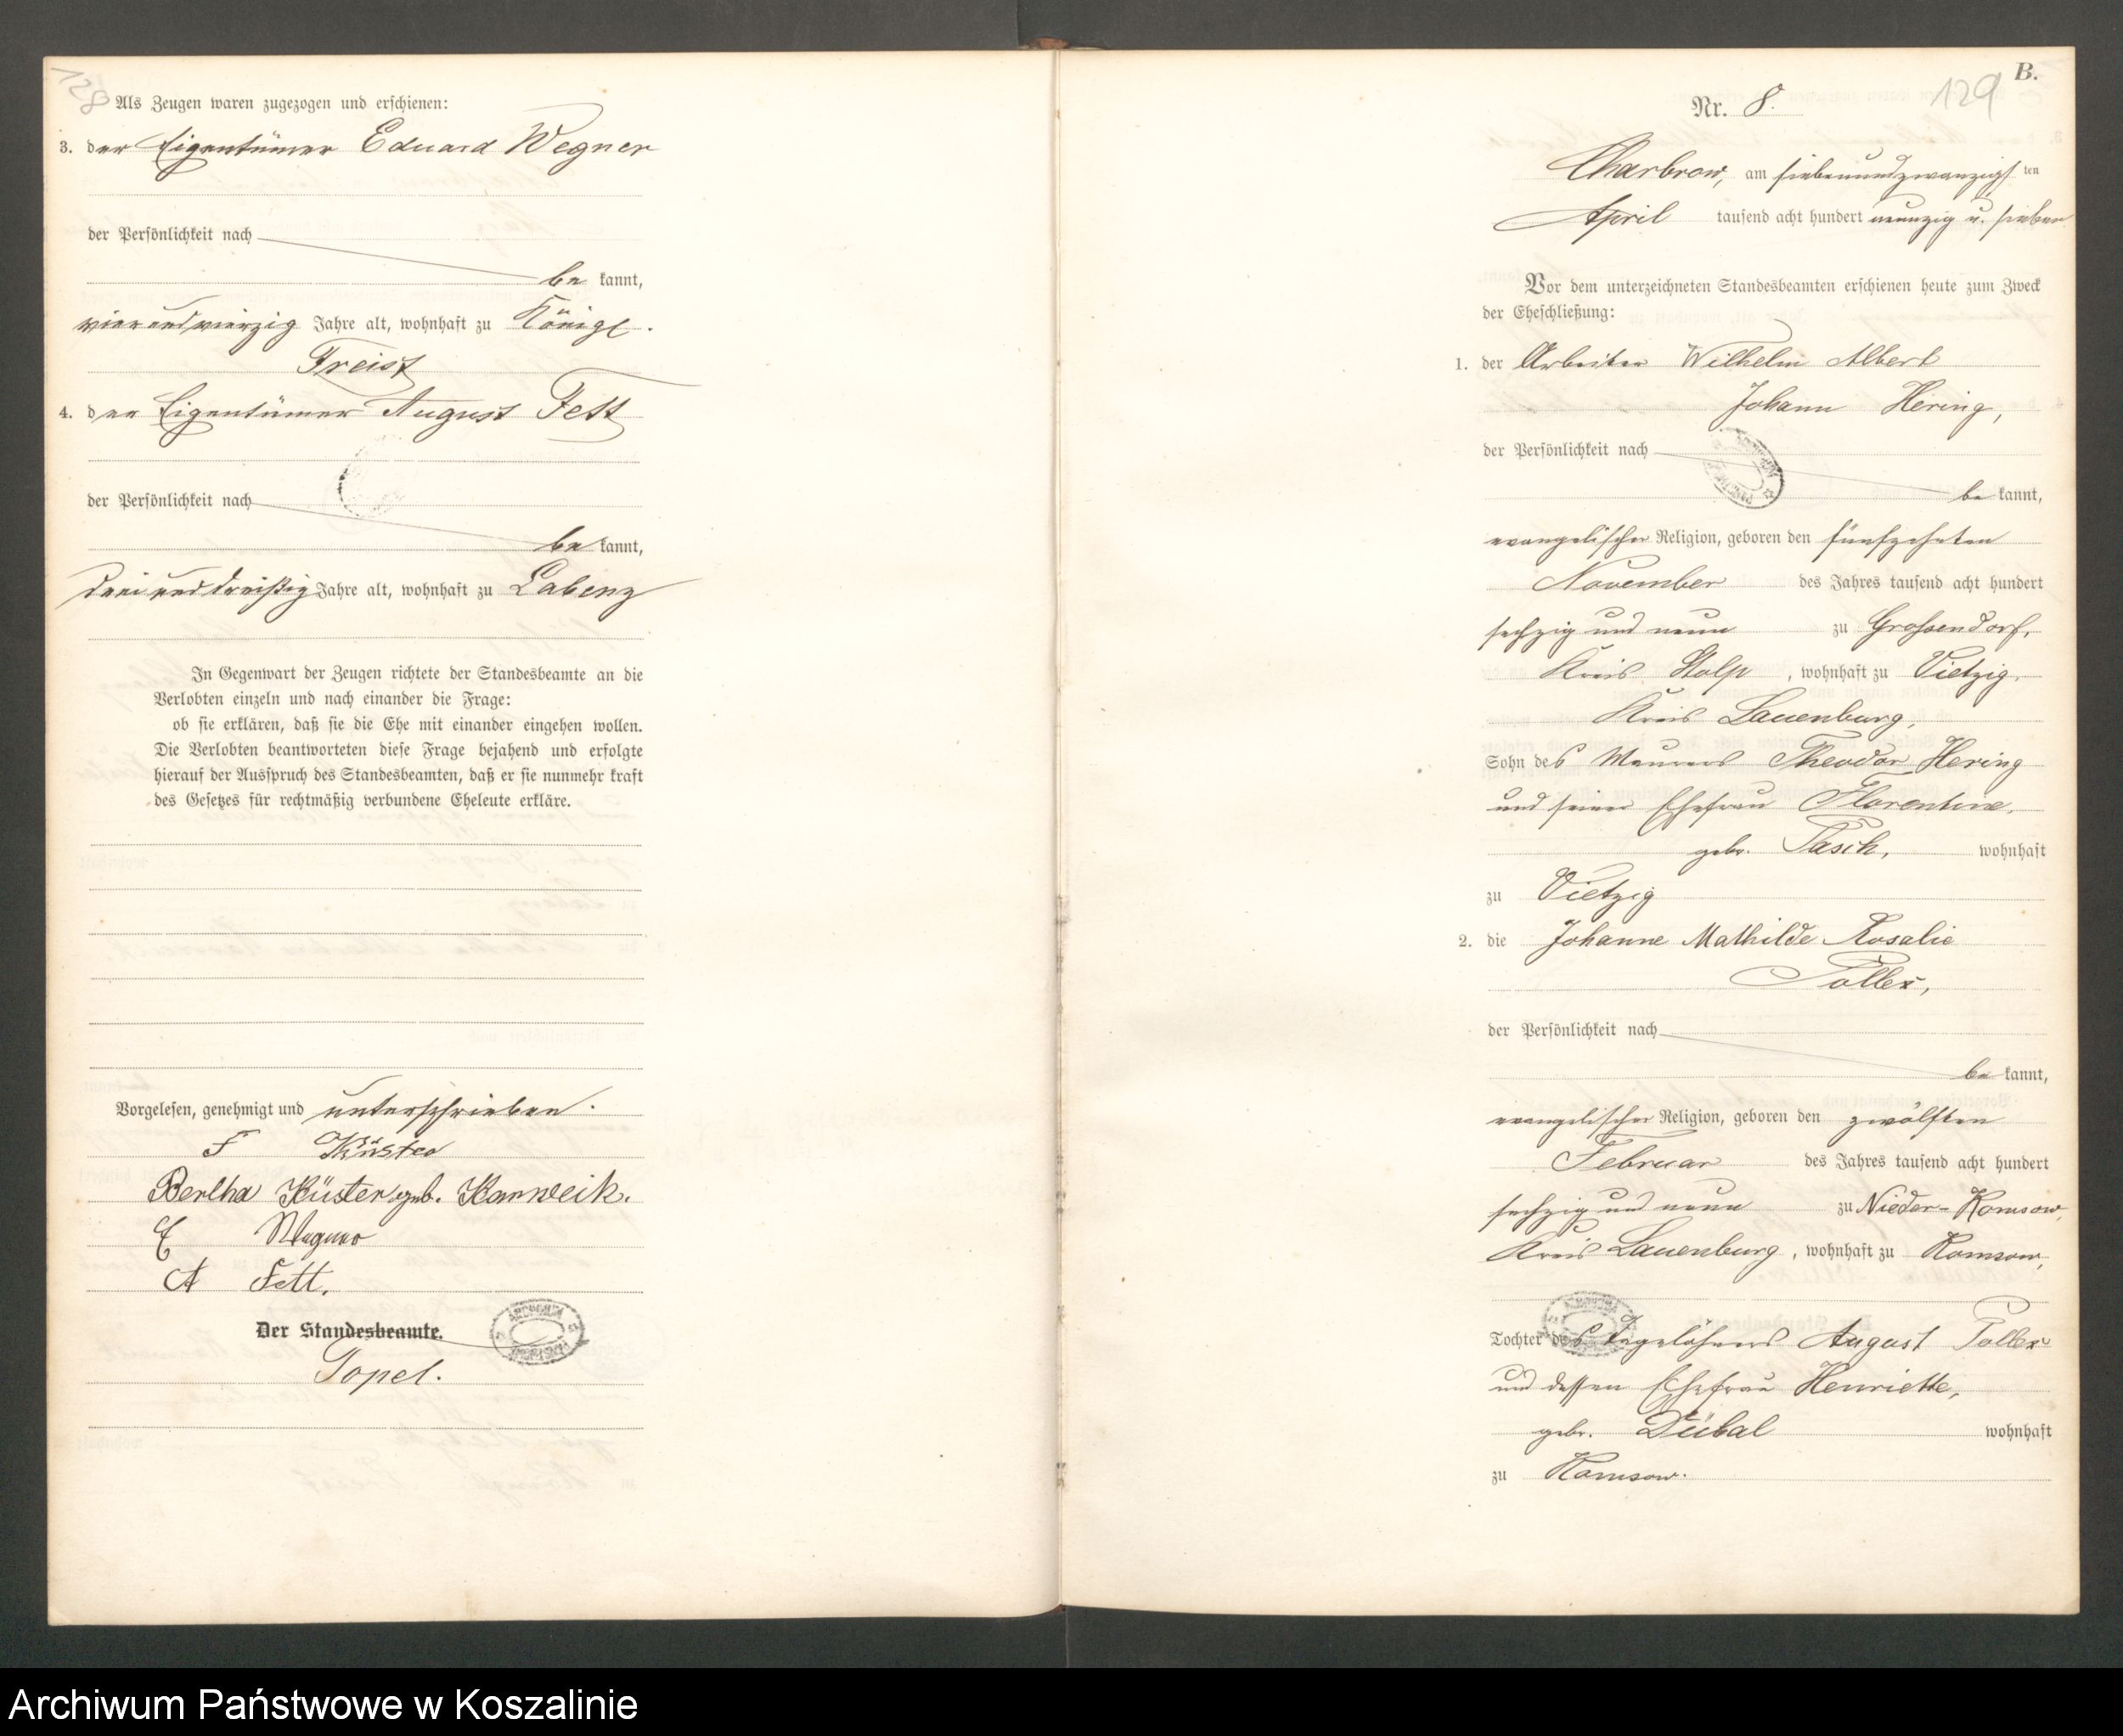 128
Als Zeugen waren zugezogen und erschienen:
3. der Eigentümer Eduard Wegner
der Persönlichkeit nach
be kannt,
vierundvierzig Jahre alt, wohnhaft zu Königl.
Freist
4. der Eigentümer August Fett
der Persönlichkeit nach
be kannt,
dreiunddreißig Jahre alt, wohnhaft zu Labenz
In Gegenwart der Zeugen richtete der Standesbeamte an die
Verlobten einzeln und nach einander die Frage:
ob sie erklären, daß sie die Ehe mit einander eingehen wollen.
Die Verlobten beantworteten diese Frage bejahend und erfolgte
hierauf der Ausspruch des Standesbeamten, daß er sie nunmehr kraft
des Gesetzes für rechtmäßig verbundene Eheleute erkläre.
Vorgelesen, genehmigt und unterschrieben.
F Küster
Bertha Küster geb. Karweik.
E Wegner
A Fett.
Der Standesbeamte.
Topel.
B.
129
Nr. 8.
Charbrow, am siebenundzwanzigs ten
April tausend acht hundert neunzig u. sieben
Vor dem unterzeichneten Standesbeamten erschienen heute zum Zweck
der Eheschließung:
1. der Arbeiter Wilhelm Albert
Johann Hering,
der Persönlichkeit nach
be kannt,
evangelischer Religion, geboren den fünfzehnten
November des Jahres tausend acht hundert
sechzig und neun zu Grossendorf,
Kreis Stolp, wohnhaft zu Vietzig,
Kreis Lauenburg,
Sohn des Maurers Theodor Hering
und seiner Ehefrau Florentine,
geb. Pasch, wohnhaft
zu Vietzig
2. die Johanne Mathilde Rosalie
Poller,
der Persönlichkeit nach
be kannt,
evangelischer Religion, geboren den zwölften
Februar des Jahres tausend acht hundert
sechzig und neun zu Nieder-Komsow,
Kreis Lauenburg, wohnhaft zu Komsow,
Tochter des Tagelöhners August Poller
und dessen Ehefrau Henriette,
geb. Dübal wohnhaft
zu Komsow.
Archiwum Państwowe w Koszalinie